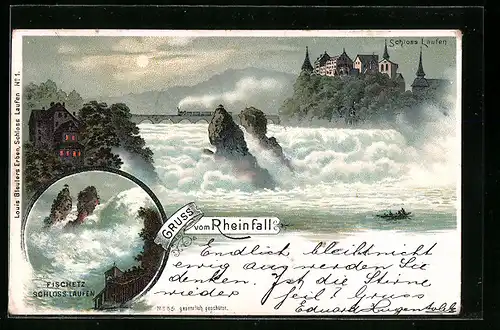 Schloss Laufen
Louis Bleulers Erben, Schloss Laufen No 1.
GRUSS
vom Rheinfall
FISCHETZ
SCHLOSS LAUFEN
gesetzlich geschützt.
Endlich, bleibt nicht
ewig aus werden Sie
denken. Ist die Stirne
wieder heil? Gruss
Eduard